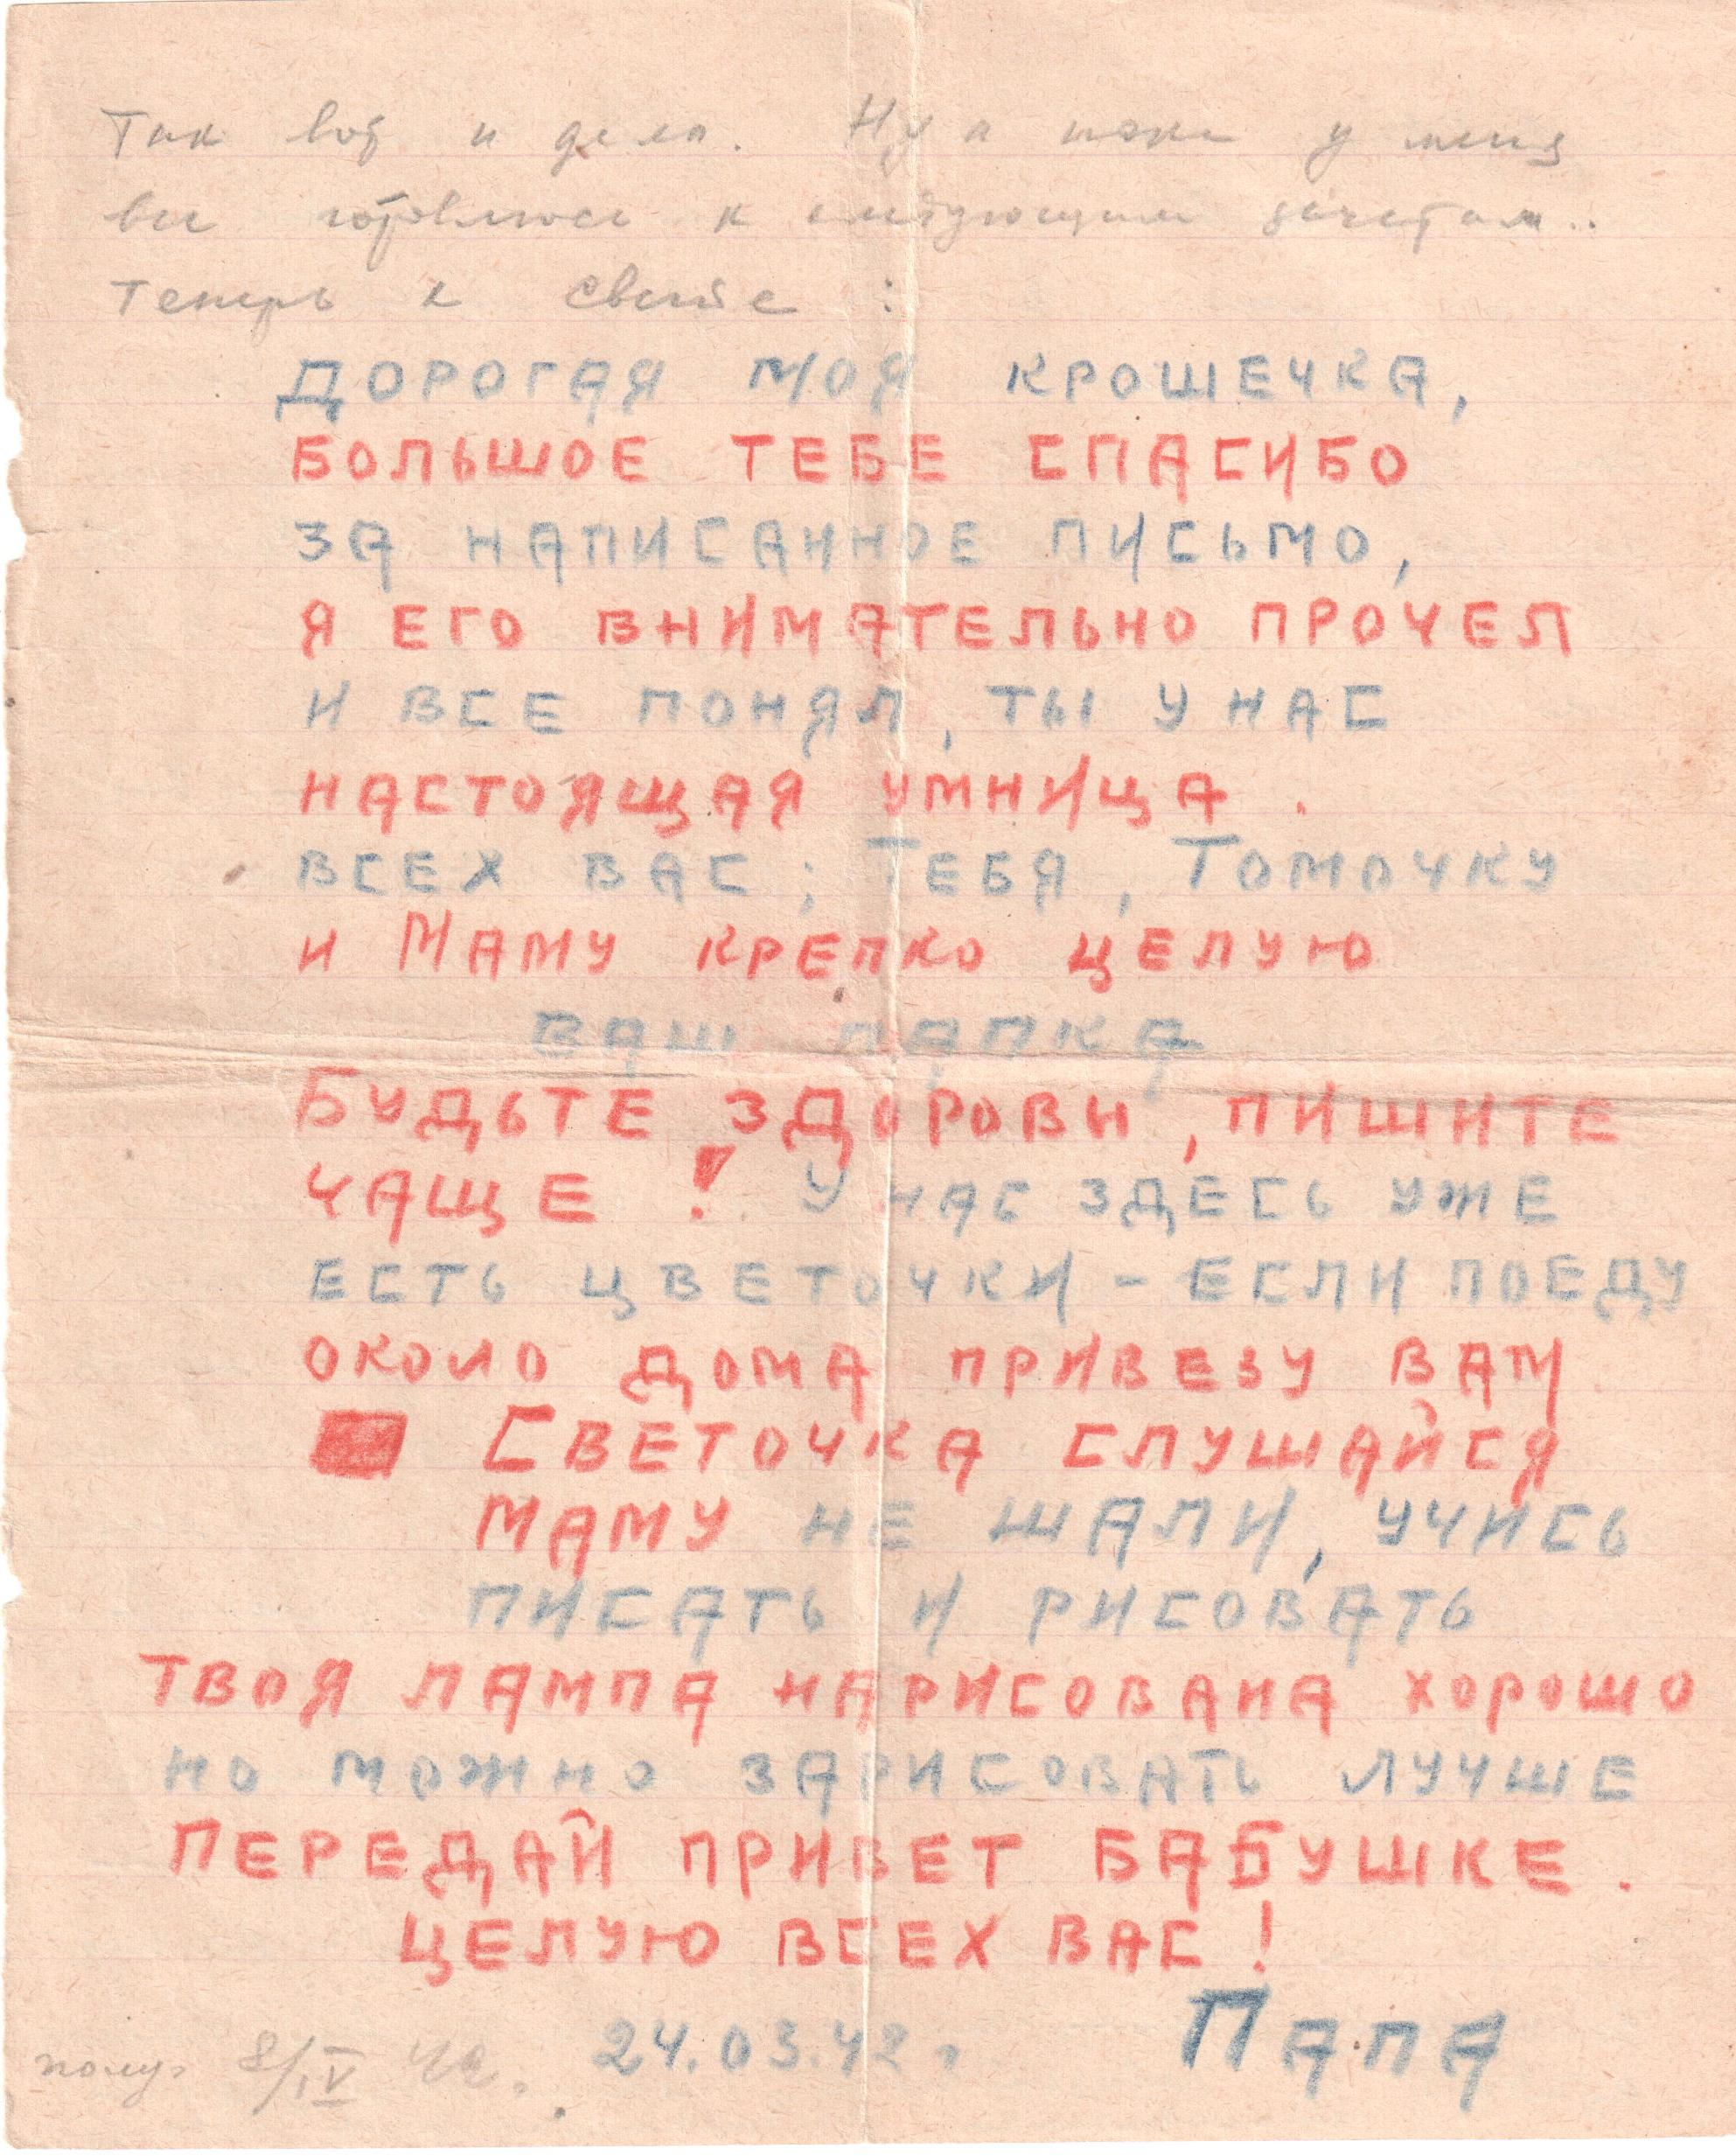 Так вот и дела. Ну а пока у меня
все готовлюсь к следующим зачетам..
Теперь к Свете :
ДОРОГАЯ МОЯ КРОШЕЧКА,
БОЛЬШОЕ ТЕБЕ СПАСИБО
ЗА НАПИСАННОЕ ПИСЬМО,
Я ЕГО ВНИМАТЕЛЬНО ПРОЧЕЛ
И ВСЕ ПОНЯЛ, ТЫ У НАС
НАСТОЯЩАЯ УМНИЦА.
ВСЕХ ВАС; ТЕБЯ, ТОМОЧКУ
И МАМУ КРЕПКО ЦЕЛУЮ
ВАШ ПАПКА
БУДЬТЕ ЗДОРОВЫ, ПИШИТЕ
ЧАЩЕ! У НАС ЗДЕСЬ УЖЕ
ЕСТЬ ЦВЕТОЧКИ - ЕСЛИ ПОЕДУ
ОКОЛО ДОМА ПРИВЕЗУ ВАМ.
СВЕТОЧКА СЛУШАЙСЯ
МАМУ НЕ ШАЛИ, УЧИСЬ
ПИСАТЬ И РИСОВАТЬ
ТВОЯ ЛАМПА НАРИСОВАНА ХОРОШО
НО МОЖНО ЗАРИСОВАТЬ ЛУЧШЕ
ПЕРЕДАЙ ПРИВЕТ БАБУШКЕ.
ЦЕЛУЮ ВСЕХ ВАС!
ПАПА
полу. 8/IV 42. 24.03.42 г.